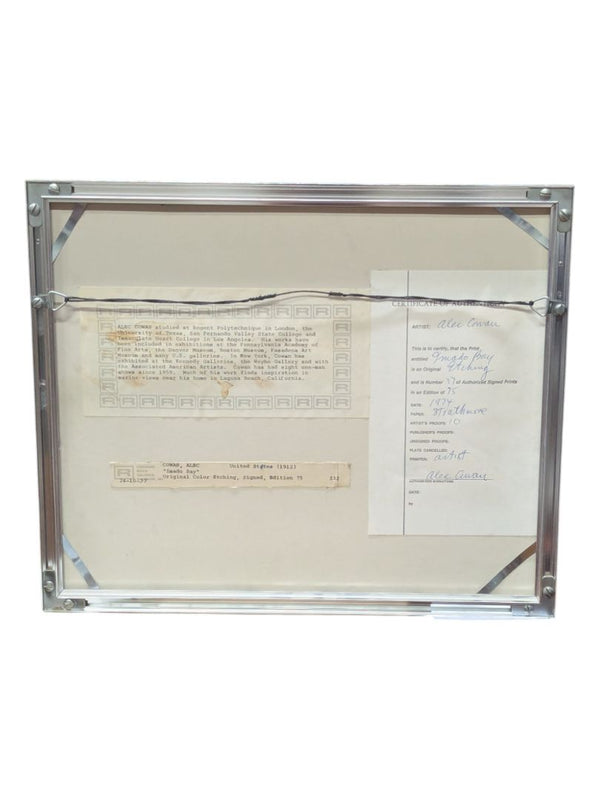 ALEC COWAN studied at Regent Polytechnique in London, the
University of Texas, San Fernando Valley State College and
Immaculate Heart College in Los Angeles. His works have
been included in exhibitions at the Pennsylvania Academy of
Fine Arts, the Denver Museum, Boston Museum, Pasadena Art
Museum and many U.S. galleries. In New York, Cowan has
exhibited at the Kennedy Galleries, the Weyhe Gallery and with
the Associated American Artists. Cowan has had eight one-man
shows since 1959. Much of his work finds inspiration in
marine views near his home in Laguna Beach, California.
COWAN, ALEC United States (1912)
Original Color Etching, Signed, Edition 75
CERTIFICATE OF
ARTIST: Alec Cowan
This is to certify, that the Print
entitled Bay
is an Original Etching
and is Number Authorized Signed Prints
in an Edition of 75
DATE: 1974
PAPER: Strathmore
ARTIST'S PROOFS: 10
PUBLISHER'S PROOFS:
UNSIGNED PROOFS:
PLATE CANCELLED:
PRINTER: artist
Alec Cowan
AUTHORIZED SIGNATURE
DATE:
by